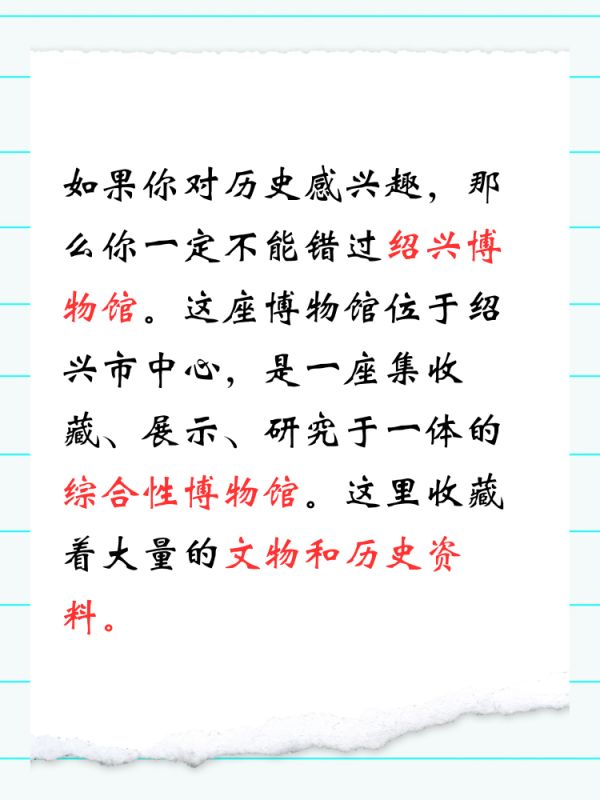 如果你对历史感兴趣，那
么你一定不能错过绍兴博
物馆。这座博物馆位于绍
兴市中心，是一座集收
藏、展示、研究于一体的
综合性博物馆。这里收藏
着大量的文物和历史资
料。